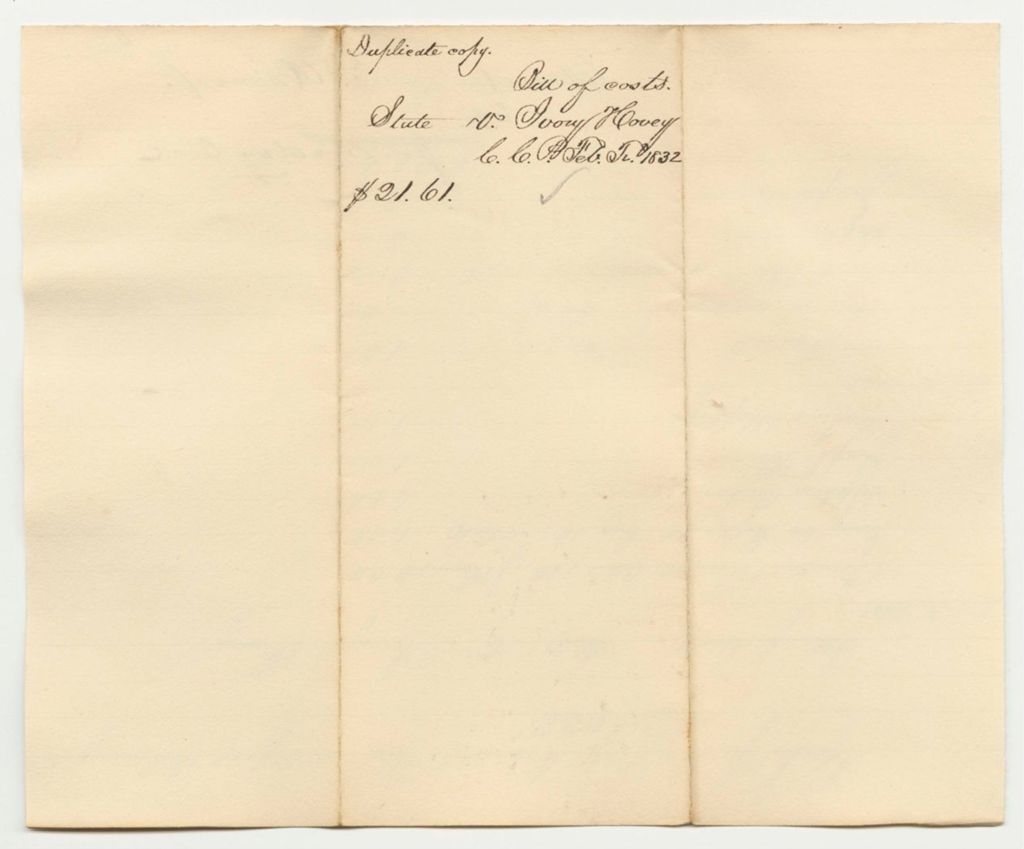 Duplicate copy.
Bill of costs.
State v. Ivory Hovey
C. C. P. Feb. Tr. 1832
$21.61.